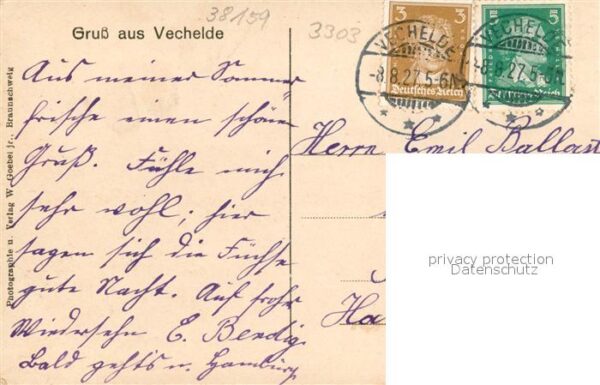 38159
3303
Gruß aus Vechelde
3
Deutsches Reich
5
Deutsches Reich
VECHELDE
-8.8.27.5-6N
VECHELDE
-8.8.27.5-6N
Aus meiner Sommer
frische einen schönen
Gruß. Fühle mich
sehr wohl; hier
sagen sich die Füchse
gute Nacht. Auf frohes
Wiedersehn E. Bendig.
Bald gehts n. Hamburg.
Herrn Emil Ballast
Ha
Photographie u. Verlag W. Goebel jr., Braunschweig
privacy protection
Datenschutz